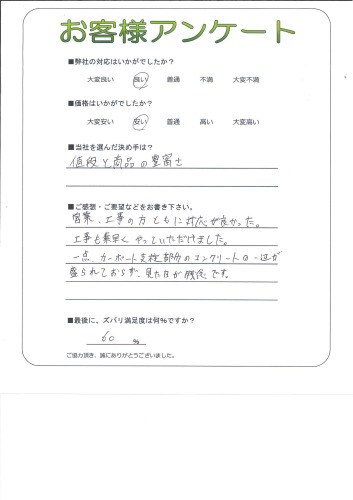 お客様アンケート
■弊社の対応はいかがでしたか？
大変良い 良い 普通 不満 大変不満
■価格はいかがでしたか？
大変安い 安い 普通 高い 大変高い
■当社を選んだ決め手は？
値段と商品の豊富さ
■ご感想・ご要望などをお書き下さい。
営業、工事の方ともに対応が良かった。
工事も素早くやっていただけました。
一点、カーポート支柱部分のコンクリートの一辺が
盛られておらず、見た目が残念です。
■最後に、ズバリ満足度は何%ですか？
60 %
ご協力頂き、誠にありがとうございました。